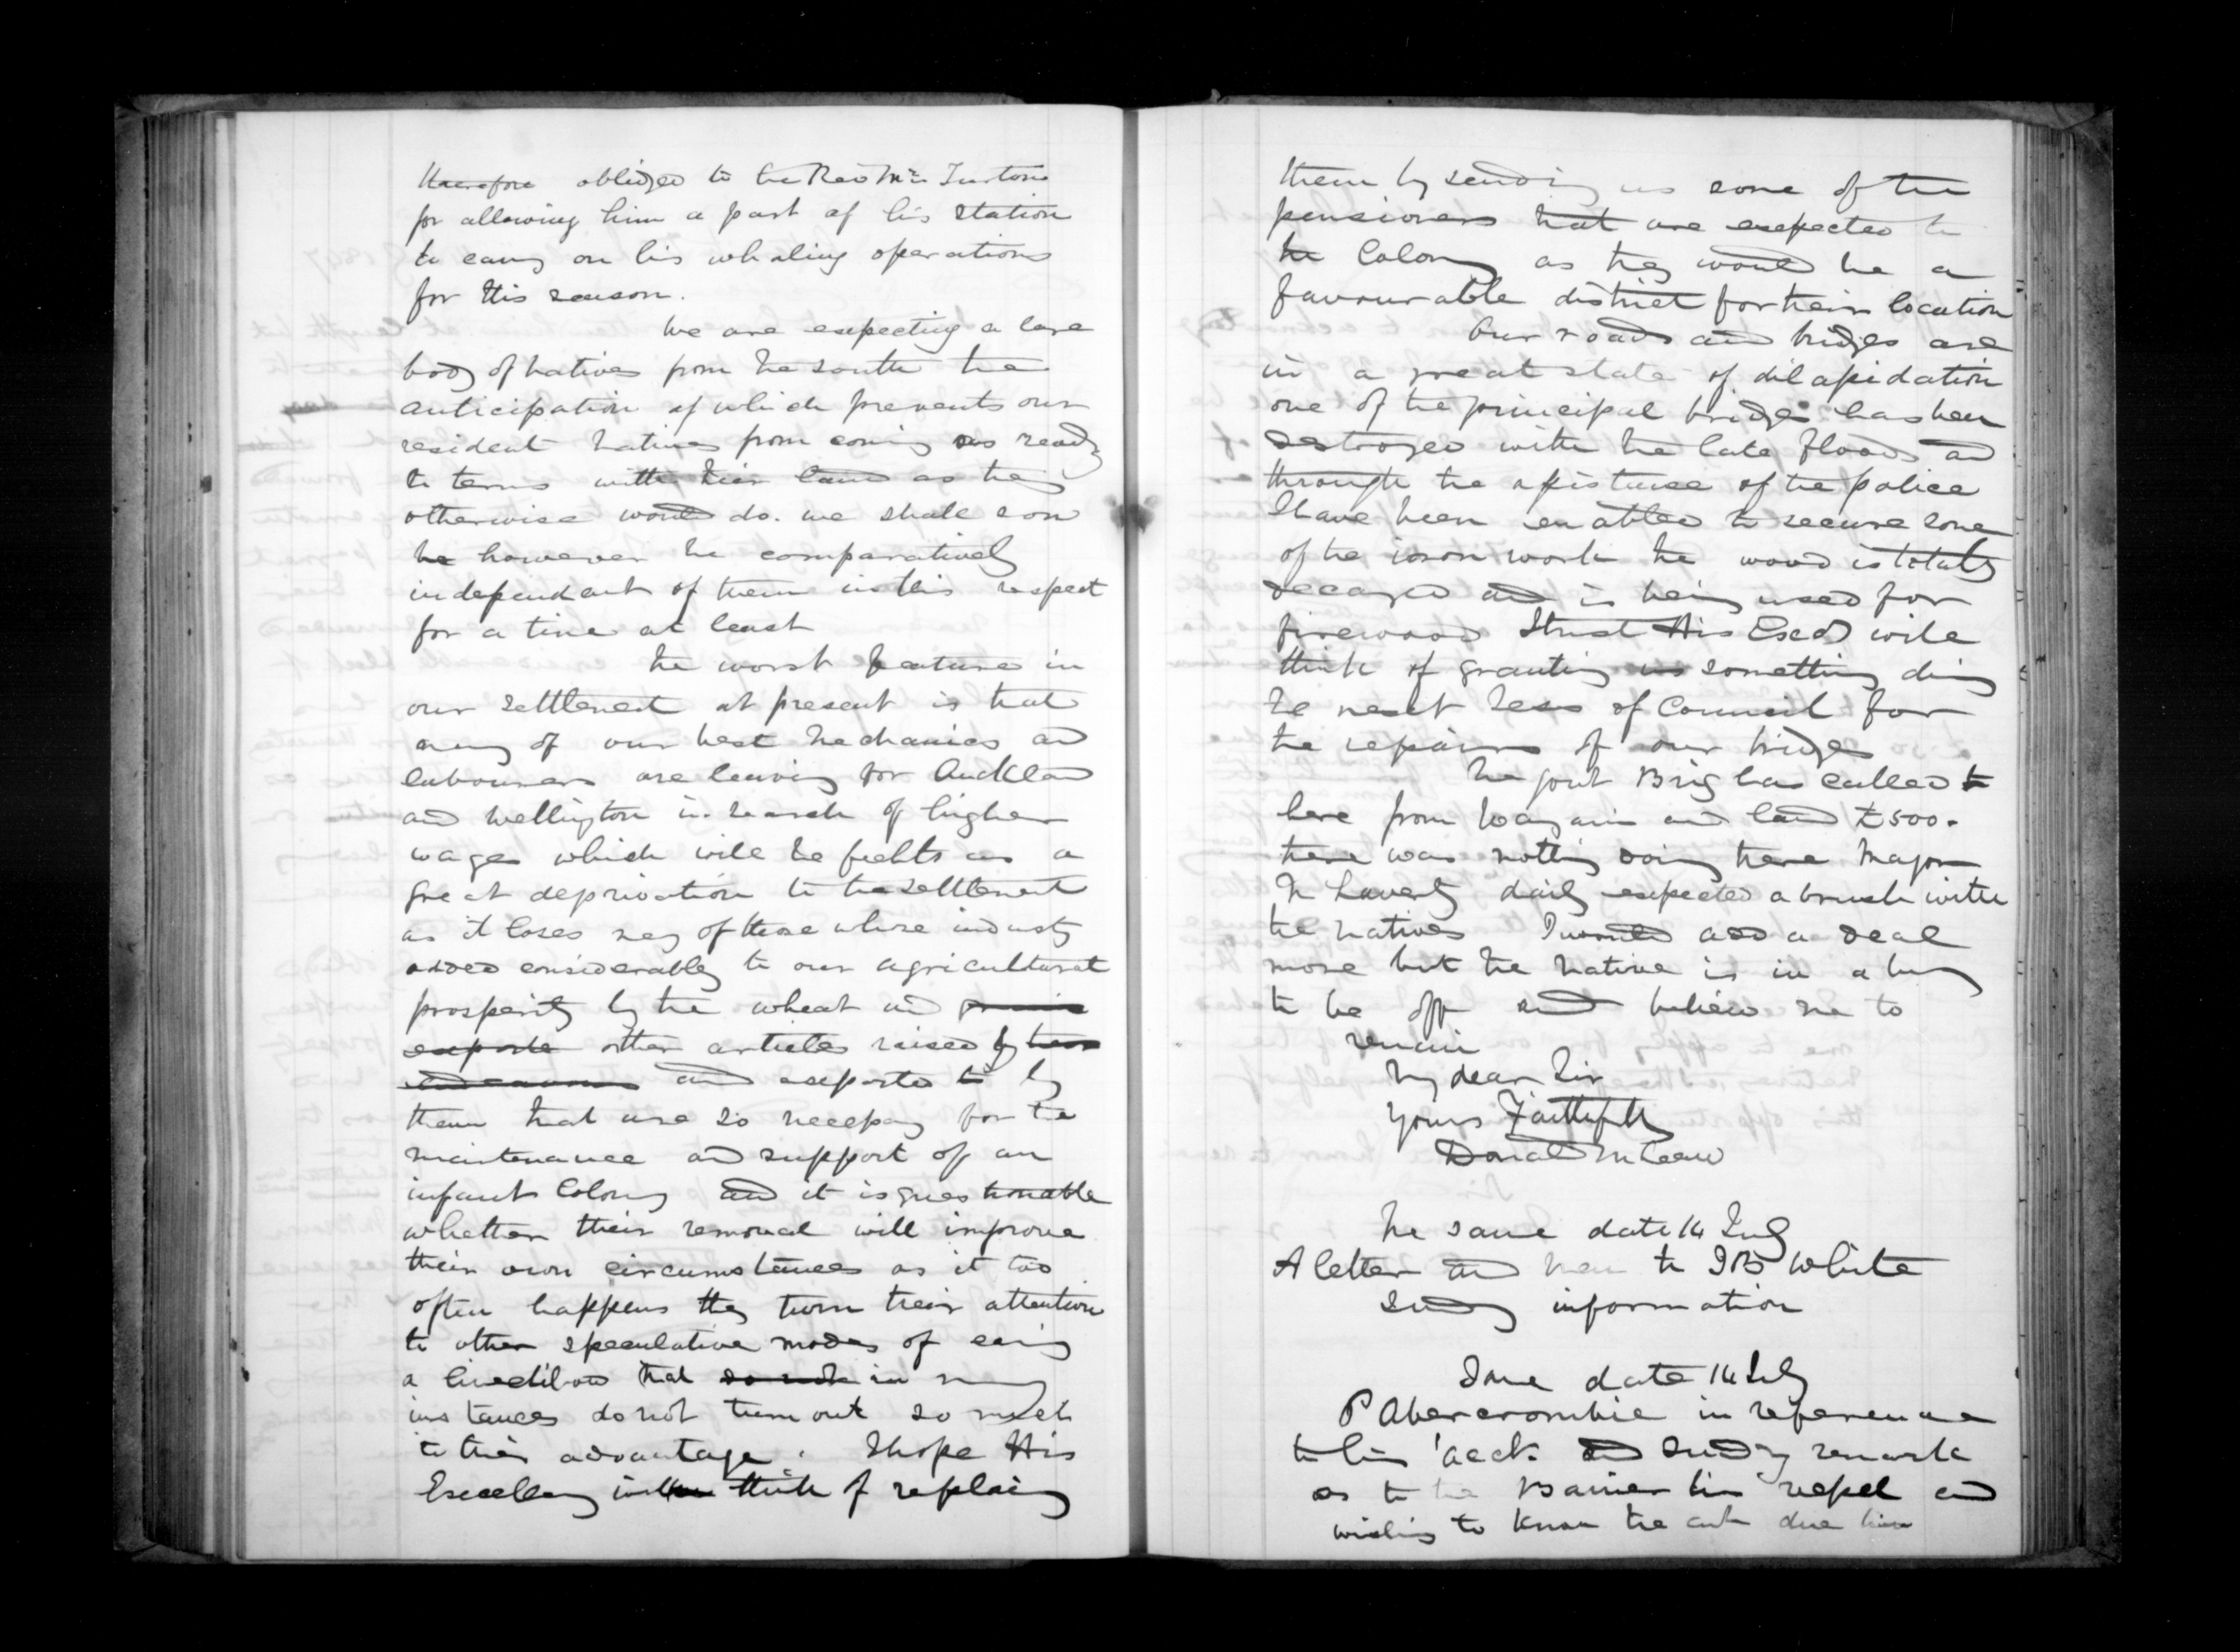 therefore obliged to the Revd Mr Turton
for allowing him a part of his station
to carry on his whaling operations
for this season.
We are expecting a large
body of natives from the south the
anticipation of which prevents our
resident natives from coming as ready
to terms with their land as they
otherwise would do. we shall soon
be however be comparatively
independant of them in this respect
for a time at least
the worst feature in
our settlement at present is that
many of our best mechanics and
labourers are leaving for Auckland
and Wellington in search of higher
wages which will be felt as a
great deprivation to the settlement
as it loses many of those whose industry
added considerably to our agricultural
prosperity by the wheat and
exports other articles raised by them
and exported to by
them that are so necessary for the
maintenance and support of an
infant Colony and it is questionable
whether their removal will improve
their own circumstances as it too
often happens they turn their attention
to other speculative modes of earning
a livelihood that so much in many
instances do not turn out so much
to their advantage. I hope His
Excellency will think of replacing
them by sending us some of the
pensioners that are expected to
the Colony as they would be a
favourable district for their location
Our roads and bridges are
in a great state of dilapidation
one of the principal bridges has been
destroyed with the late floods and
through the assistance of the police
I have been enabled to secure some
of the iron work the wood is totally
decayed and is being used for
firewood I trust His Excey will
think of granting us something during
the next Sess of Council for
the repairs of our bridges
The govt Brig has called to
here from Wanganui and land £500.
there was nothing doing there Major
daily expected a brush with
the natives I would add a deal
more but the native is in a hurry
to be off and believe me to
remain
My dear Sir
Yours Faithfully
Donald McLean
The same date 14 July
A letter and to I B White
Sundry information
Same date 14 July
P Abercrombie in reference
to his acct. and sundry remarks
as to the Barrier his vessel and
wishing to know the amt due him